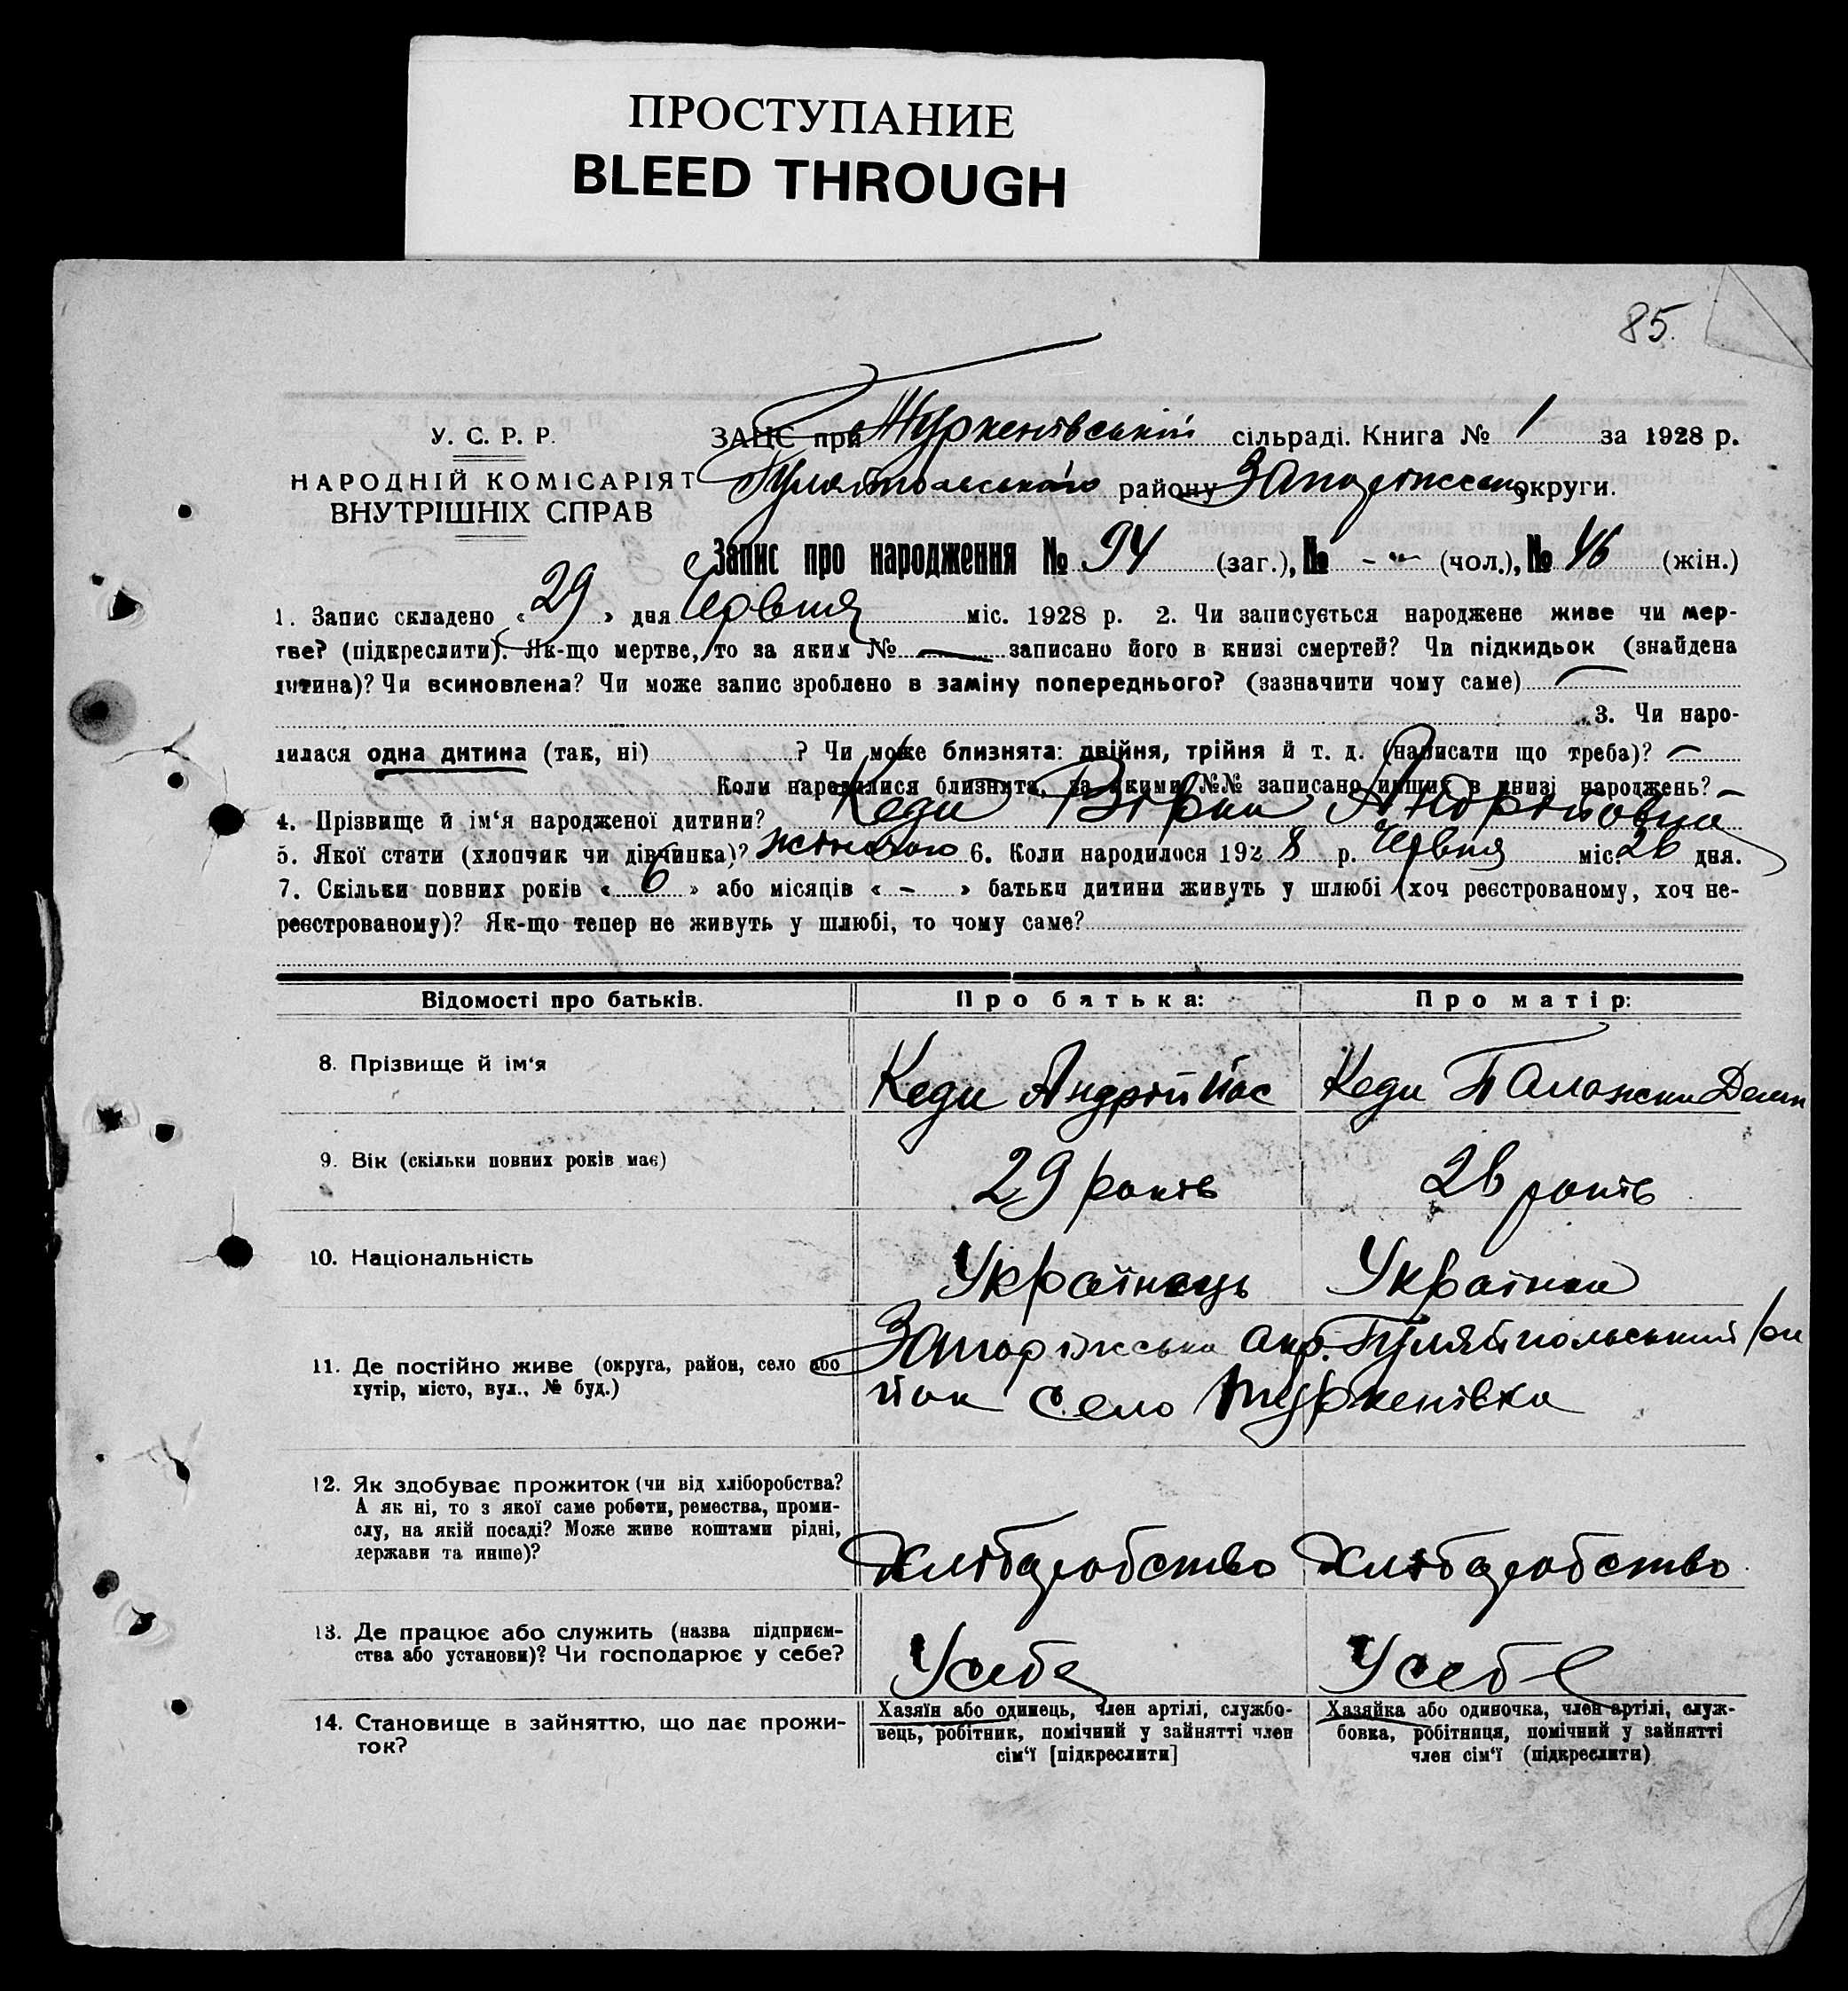 ПРОСТУПАНИЕ
BLEED THROUGH
85.
У. С. Р. Р.
НАРОДНІЙ КОМІСАРІЯТ
ВНУТРІШНІХ СПРАВ
ЗАЦС при Туркенівській сільраді. Книга № 1 за 1928 р.
Гуляйпольського району Запоріжської округи.
Запис про народження № 94 (заг.), № - - (чол.), № 46 (жін.)
1. Запис складено « 29 » дня Червня міс. 1928 р. 2. Чи записується народжене живе чи мер-
тве? (підкреслити). Як-що мертве, то за яким № — записано його в книзі смертей? Чи підкидьок (знайдена
дитина)? Чи всиновлена? Чи може запис зроблено в заміну попереднього? (зазначити чому саме) —
3. Чи наро-
дилася одна дитина (так, ні) ? Чи може близнята: двійня, трійня й т. д. (написати що треба)? —
Коли народилися близнята, за якими №№ записано инших в книзі народжень? —
4. Прізвище й ім‘я народженої дитини? Кеди Вірка Андріївна
5. Якої стати (хлопчик чи дівчинка)? жіночою 6. Коли народилося 192 8 р. Червня міс. 26 дня.
7. Скільки повних років « 6 » або місяців « - » батьки дитини живуть у шлюбі (хоч реєстрованому, хоч не-
реєстрованому)? Як-що тепер не живуть у шлюбі, то чому саме?
Відомості про батьків. Про батька: Про матір:
8. Прізвище й ім‘я Кеди Андрій Кеди
9. Вік (скільки повних років має) 29 років 26 років
10. Національність Українець Українка
11. Де постійно живе (округа, район, село або
хутір, місто, вул., № буд.)
Запоріжська окр. Гуляйпольський ра
йон село Туркенівка
12. Як здобуває прожиток (чи від хліборобства?
А як ні, то з якої саме роботи, ремества, проми-
слу, на якій посаді? Може живе коштами рідні,
держави та инше)?
Хліборобство Хліборобство
13. Де працює або служить (назва підприєм-
ства або установи)? Чи господарює у себе?
У себе У себе
14. Становище в зайняттю, що дає прожи-
ток?
Хазяїн або одинець, член артілі, службо-
вець, робітник, помічний у зайнятті член
сім‘ї [підкреслити]
Хазяйка або одиночка, член артілі, служ-
бовка, робітниця, помічний у зайнятті
член сім‘ї (підкреслити)